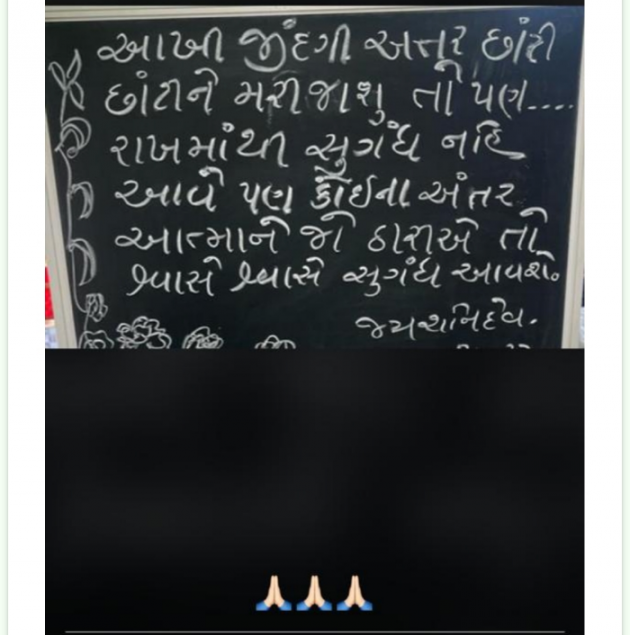 આખી જીંદગી અત્તર છાંટી
છાંટીને મરીજાશુ તો પણ....
રાખમાંથી સુગંધ નહિ
આવે પણ કોઈના અંતર
આત્માને જો ઠારીએ તો
શ્વાસે શ્વાસે સુગંધ આવશે.
જયશનિદેવ.